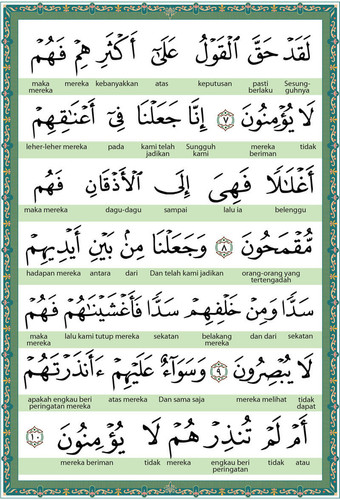 لَقَدْ حَقَّ الْقَوْلُ عَلَىٰٓ أَكْثَرِهِمْ فَهُمْ
maka mereka mereka kebanyakkan atas keputusan pasti berlaku Sesung-guhnya
لَا يُؤْمِنُونَ ٧ إِنَّا جَعَلْنَا فِىٓ أَعْنَٰقِهِمْ
leher-leher mereka pada kami telah jadikan Sungguh kami mereka beriman tidak
أَغْلَٰلًا فَهِىَ إِلَى الْأَذْقَانِ فَهُم
maka mereka dagu-dagu sampai lalu ia belenggu
مُّقْمَحُونَ ٨ وَجَعَلْنَا مِنۢ بَيْنِ أَيْدِيهِمْ
hadapan mereka antara dari Dan telah kami jadikan orang-orang yang tertengadah
سَدًّا وَمِنْ خَلْفِهِمْ سَدًّا فَأَغْشَيْنَٰهُمْ فَهُمْ
maka mereka lalu kami tutup mereka sekatan belakang mereka dan dari sekatan
لَا يُبْصِرُونَ ٩ وَسَوَآءٌ عَلَيْهِمْ ءَأَنذَرْتَهُمْ
apakah engkau beri peringatan mereka atas mereka Dan sama saja mereka melihat tidak dapat
أَمْ لَمْ تُنذِرْهُمْ لَا يُؤْمِنُونَ ١٠
mereka beriman tidak mereka engkau beri peringatan tidak atau